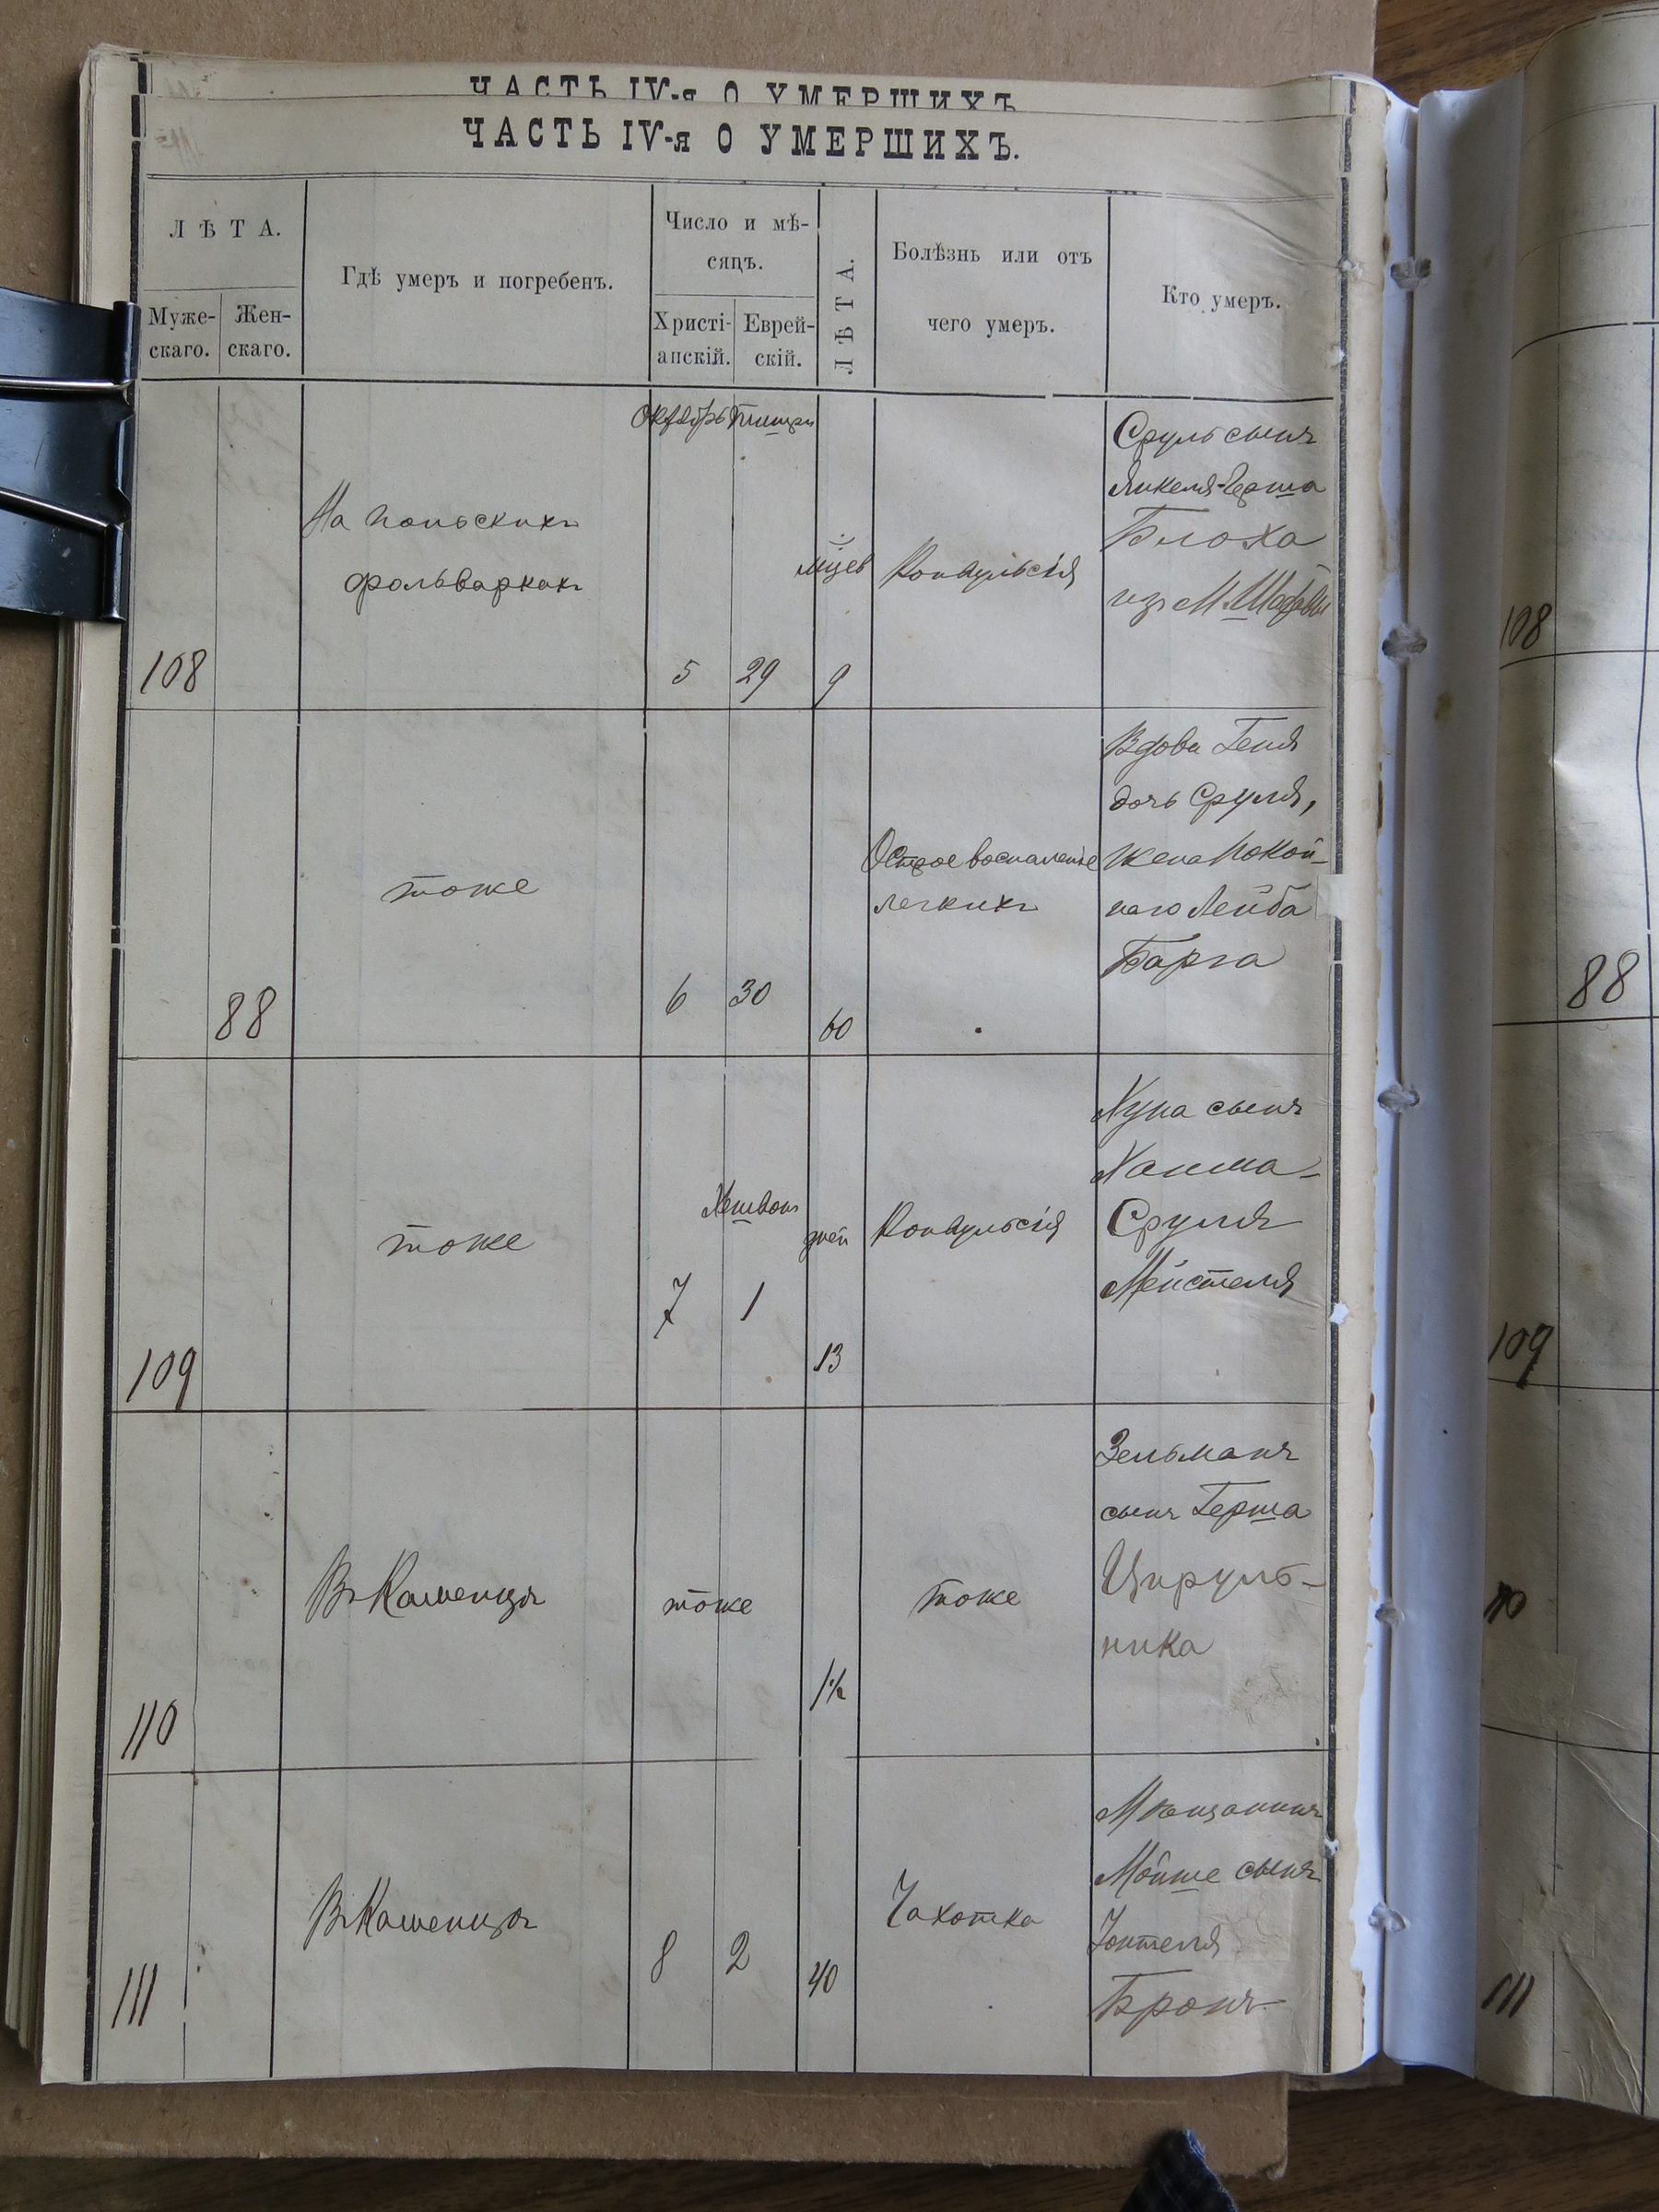 ЧАСТЬ IV-я О УМЕРШИХЪ
ЧАСТЬ IV-я О УМЕРШИХЪ.
ЛѢТА.
Муже-
скаго.
Жен-
скаго.
Гдѣ умеръ и погребенъ.
Число и мѣ-
сяцъ.
Христі-
анскій.
Еврей-
скій.
ЛѢТА.
Болѣзнь или отъ
чего умеръ.
Кто умеръ.
108
На польскихъ
фольваркахъ
Октябрь
Тишри
5
29
9
Конвульсія
Сруль сынъ
Янкеля-Герша
Блоха
изъ М.
108
88
тоже
6
30
60
Острое воспаленіе
легкихъ
Вдова Геня
дочь Сруля,
жена покой-
наго Лейба
Барга
88
109
тоже
Хешвонъ
7
1
дней
13
Конвульсія
Хуна сынъ
Хаима-
Сруля
Мейстеля
109
110
Въ Каменцѣ
тоже
1½
тоже
Зельманъ
сынъ Герша
Цируль-
ника
110
111
Въ Каменцѣ
8
2
40
Чахотка
Мѣщанинъ
Мойше сынъ
Бронъ
111